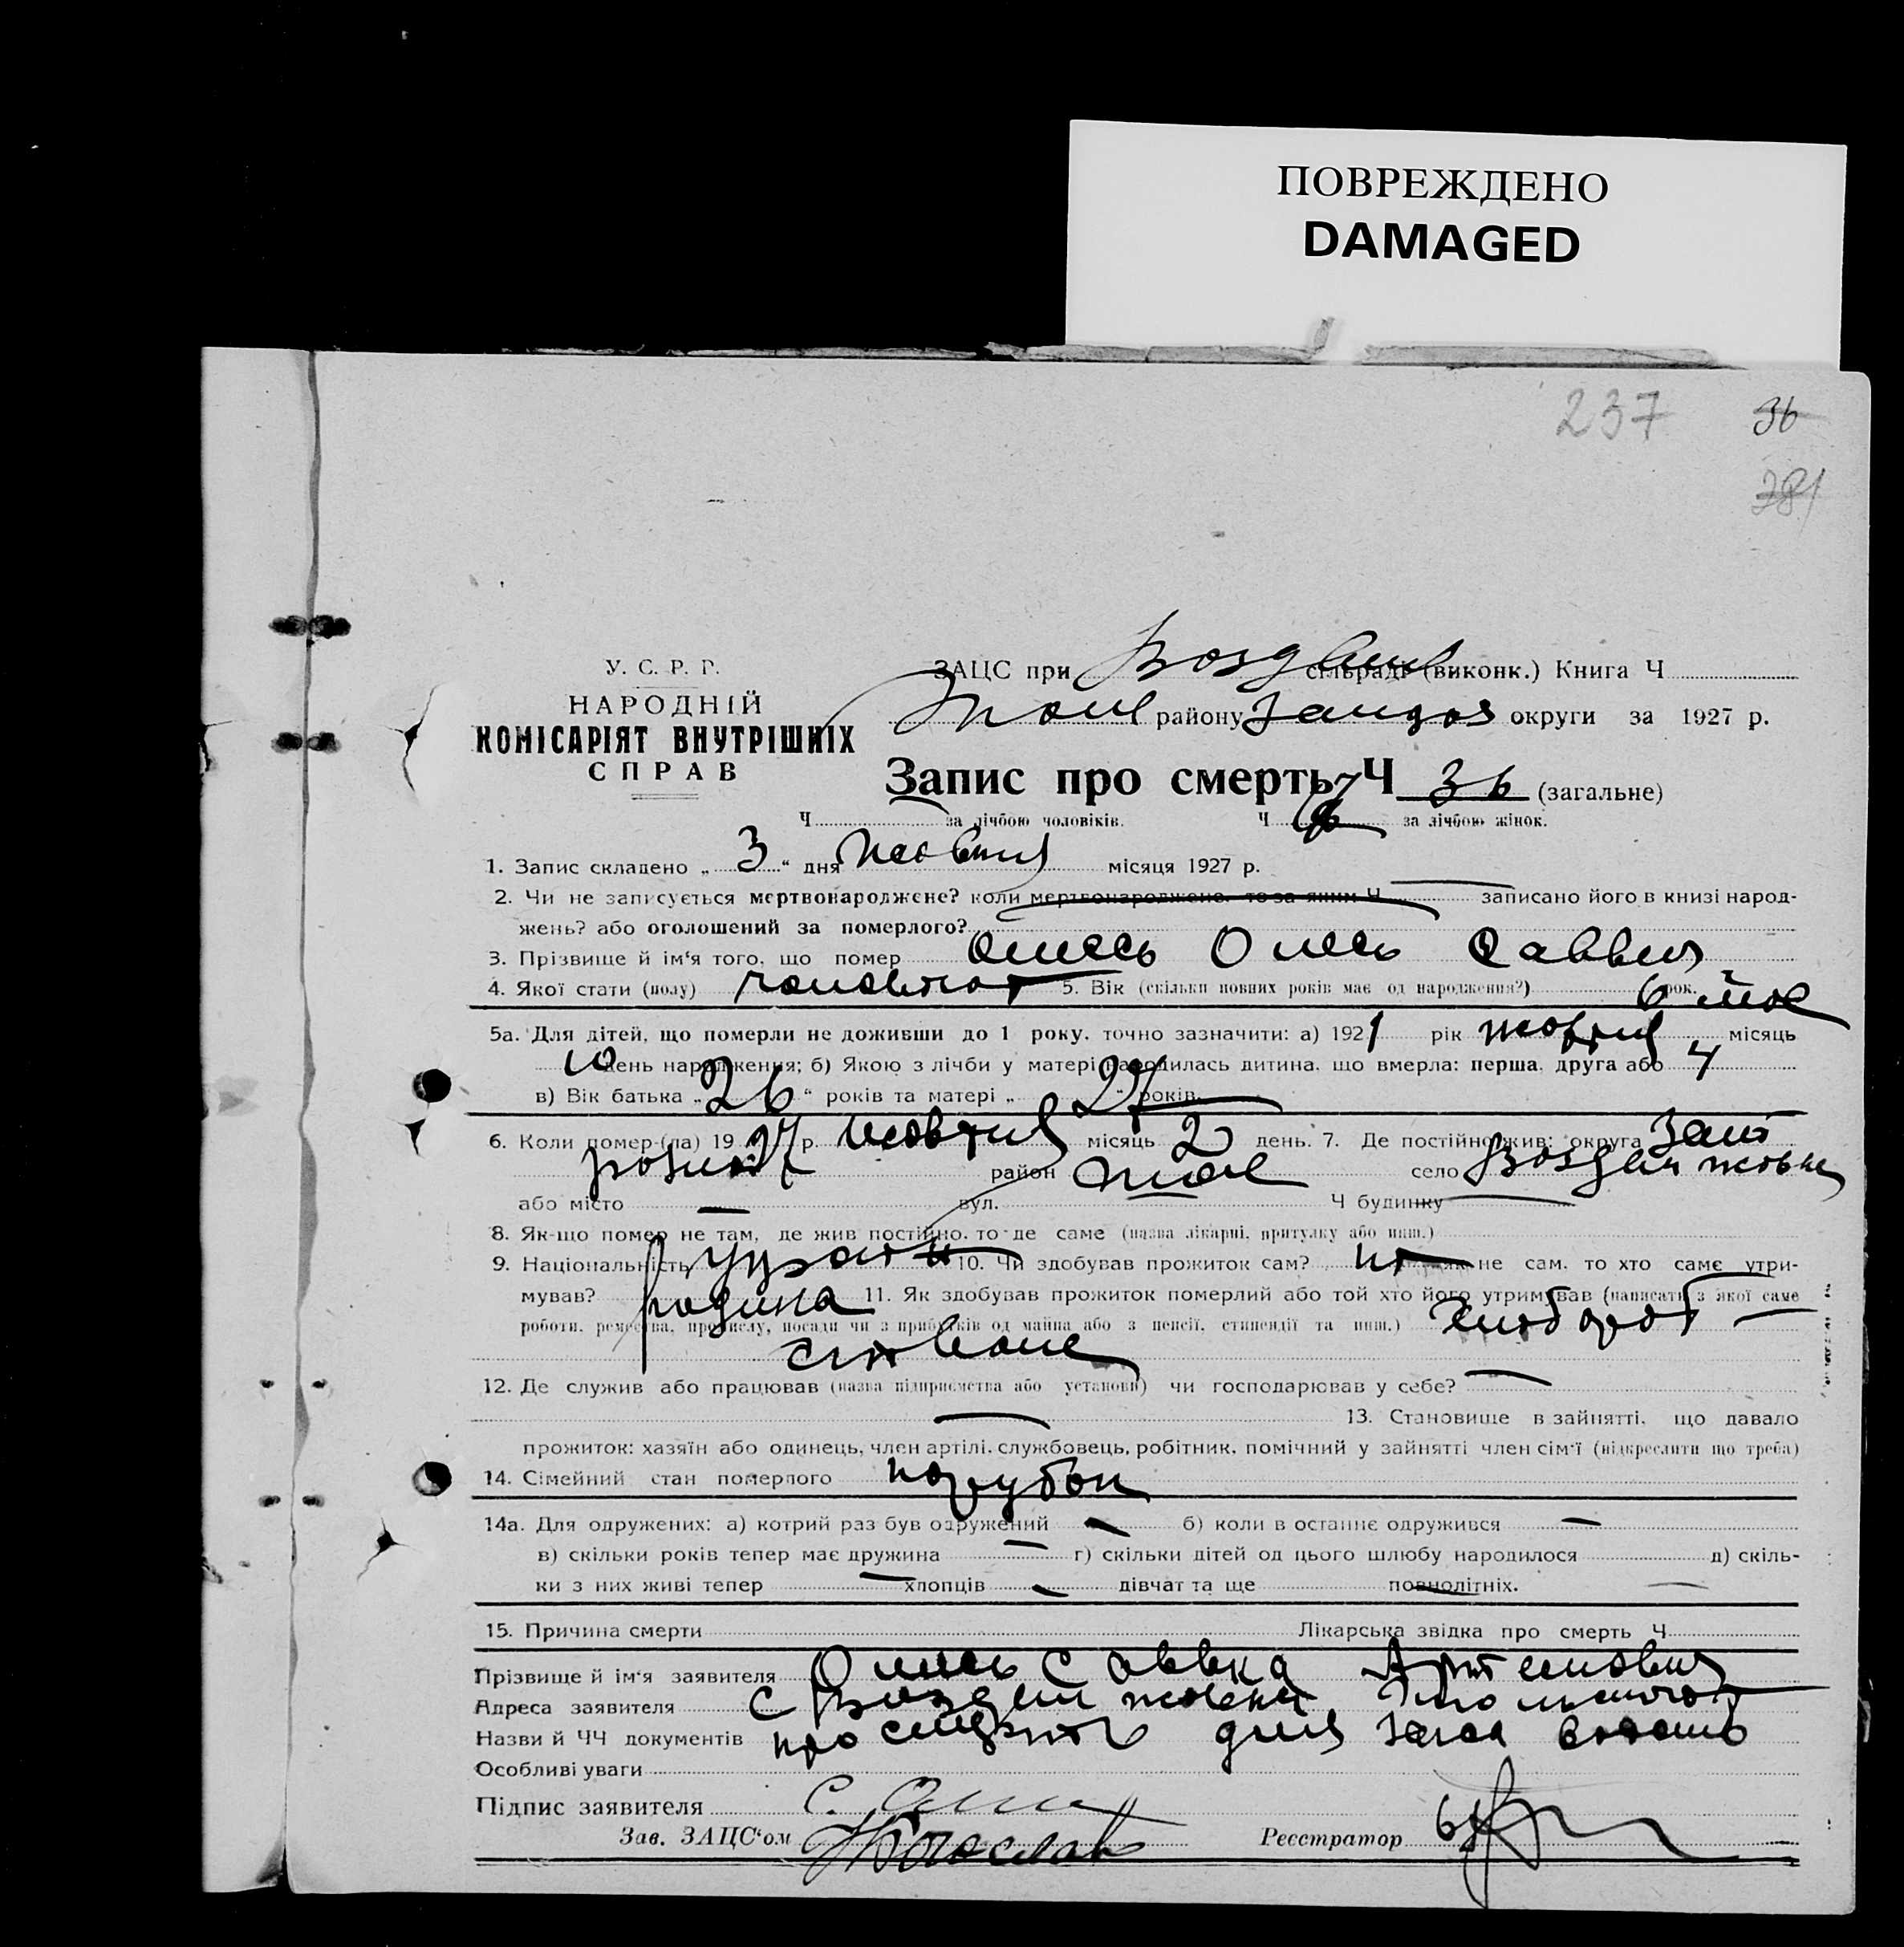 ПОВРЕЖДЕНО
DAMAGED
237 36
381
У. С. Р. Р.
НАРОДНІЙ
КОМІСАРІЯТ ВНУТРІШНІХ
СПРАВ
ЗАЦС при сільраді (виконк.) Книга Ч
району округи за 1927 р.
Запис про смерть Ч 36 (загальне)
Ч за лічбою чоловіків. Ч за лічбою жінок.
1. Запис складено „ 3 “ дня жовтня місяця 1927 р.
2. Чи не записується мертвонароджене? коли мертвонароджене, то за яким Ч записано його в книзі народ-
жень? або оголошений за померлого?
3. Прізвище й ім'я того, що помер
4. Якої стати (полу) 5. Вік (скільки повних років має од народження?) рок.
5а. Для дітей, що померли не доживши до 1 року, точно зазначити: а) 1921 рік жовтня місяць
10 день народження; б) Якою з лічби у матері народилась дитина, що вмерла: перша, друга або 4
в) Вік батька „ 26 “ років та матері „ 27 “ років.
6. Коли помер-(ла) 1927 р. жовтня місяць 2 день. 7. Де постійно жив: округа Запо
різька район село
або місто — вул. Ч будинку —
8. Як-що помер не там, де жив постійно, то де саме (назва лікарні, притулку або инш.)
9. Національність 10. Чи здобував прожиток сам? ні як не сам, то хто саме утри-
мував? родина 11. Як здобував прожиток померлий або той хто його утримував (написати з якої саме
роботи, ремества, промислу, посади чи з прибутків од майна або з пенсії, стипендії та инш.)
12. Де служив або працював (назва підприємства або установи) чи господарював у себе? —
— 13. Становище в зайнятті, що давало
прожиток: хазяїн або одинець, член артілі, службовець, робітник, помічний у зайнятті член сім'ї (підкреслити що треба)
14. Сімейний стан померлого парубок
14а. Для одружених: а) котрий раз був одружений — б) коли в останнє одружився —
в) скільки років тепер має дружина — г) скільки дітей од цього шлюбу народилося д) скіль-
ки з них живі тепер — хлопців — дівчат та ще повнолітніх. —
15. Причина смерти Лікарська звідка про смерть Ч
Прізвище й ім'я заявителя Савка Артемович
Адреса заявителя с
Назви й ЧЧ документів про смерть для
Особливі уваги
Підпис заявителя С.
Зав. ЗАЦС'ом Реєстратор